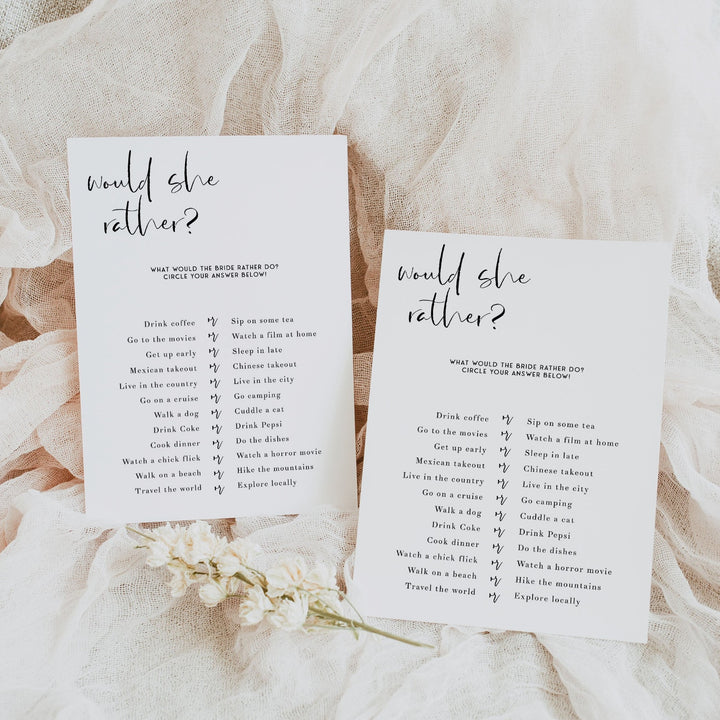 would she
rather?
WHAT WOULD THE BRIDE RATHER DO?
CIRCLE YOUR ANSWER BELOW!
Drink coffee or Sip on some tea
Go to the movies or Watch a film at home
Get up early or Sleep in late
Mexican takeout or Chinese takeout
Live in the country or Live in the city
Go on a cruise or Go camping
Walk a dog or Cuddle a cat
Drink Coke or Drink Pepsi
Cook dinner or Do the dishes
Watch a chick flick or Watch a horror movie
Walk on a beach or Hike the mountains
Travel the world or Explore locally
would she
rather?
WHAT WOULD THE BRIDE RATHER DO?
CIRCLE YOUR ANSWER BELOW!
Drink coffee or Sip on some tea
Go to the movies or Watch a film at home
Get up early or Sleep in late
Mexican takeout or Chinese takeout
Live in the country or Live in the city
Go on a cruise or Go camping
Walk a dog or Cuddle a cat
Drink Coke or Drink Pepsi
Cook dinner or Do the dishes
Watch a chick flick or Watch a horror movie
Walk on a beach or Hike the mountains
Travel the world or Explore locally